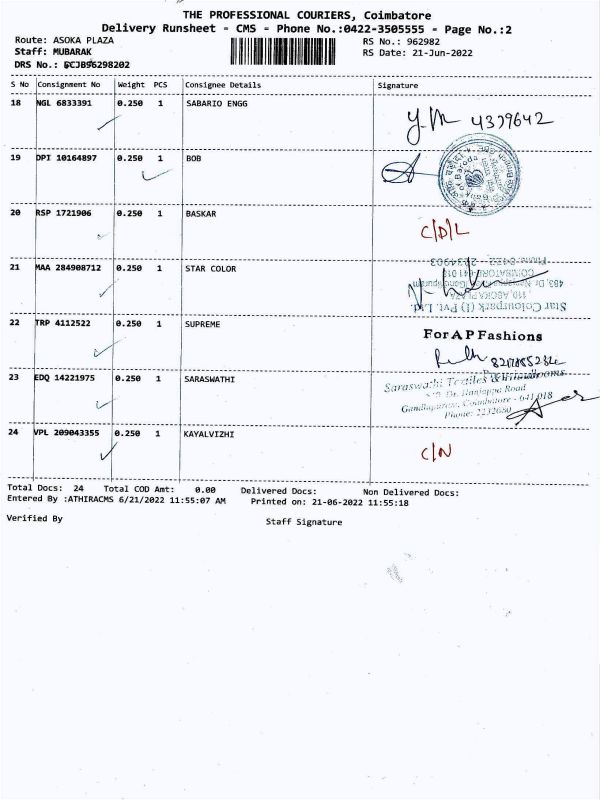 THE PROFESSIONAL COURIERS, Coimbatore
Delivery Runsheet - CMS - Phone No.:0422-3505555 - Page No.:2
Route: ASOKA PLAZA
RS No.: 962982
Staff: MUBARAK
RS Date: 21-Jun-2022
DRS No.: BCJB96298202
S No Consignment No Weight PCS Consignee Details Signature
18 NGL 6833391 0.250 1 SABARIO ENGG
4379642
19 DPI 10164897 0.250 1 BOB
of Baroda
20 RSP 1721906 0.250 1 BASKAR
C/D/L
21 MAA 284908712 0.250 1 STAR COLOR
Star Colourpark (I) Pvt. Ltd.
110, ASOKA PLAZA
COIMBATORE-641 018
22 TRP 4112522 0.250 1 SUPREME
For A P Fashions
23 EDQ 14221975 0.250 1 SARASWATHI
Saraswathi Textiles & Handlooms
Dr. Nanjappa Road
Gandhipuram, Coimbatore - 641 018
Phone: 2232680
24 VPL 209043355 0.250 1 KAYALVIZHI
C/N
Total Docs: 24 Total COD Amt: 0.00 Delivered Docs: Non Delivered Docs:
Entered By :ATHIRACMS 6/21/2022 11:55:07 AM Printed on: 21-06-2022 11:55:18
Verified By
Staff Signature